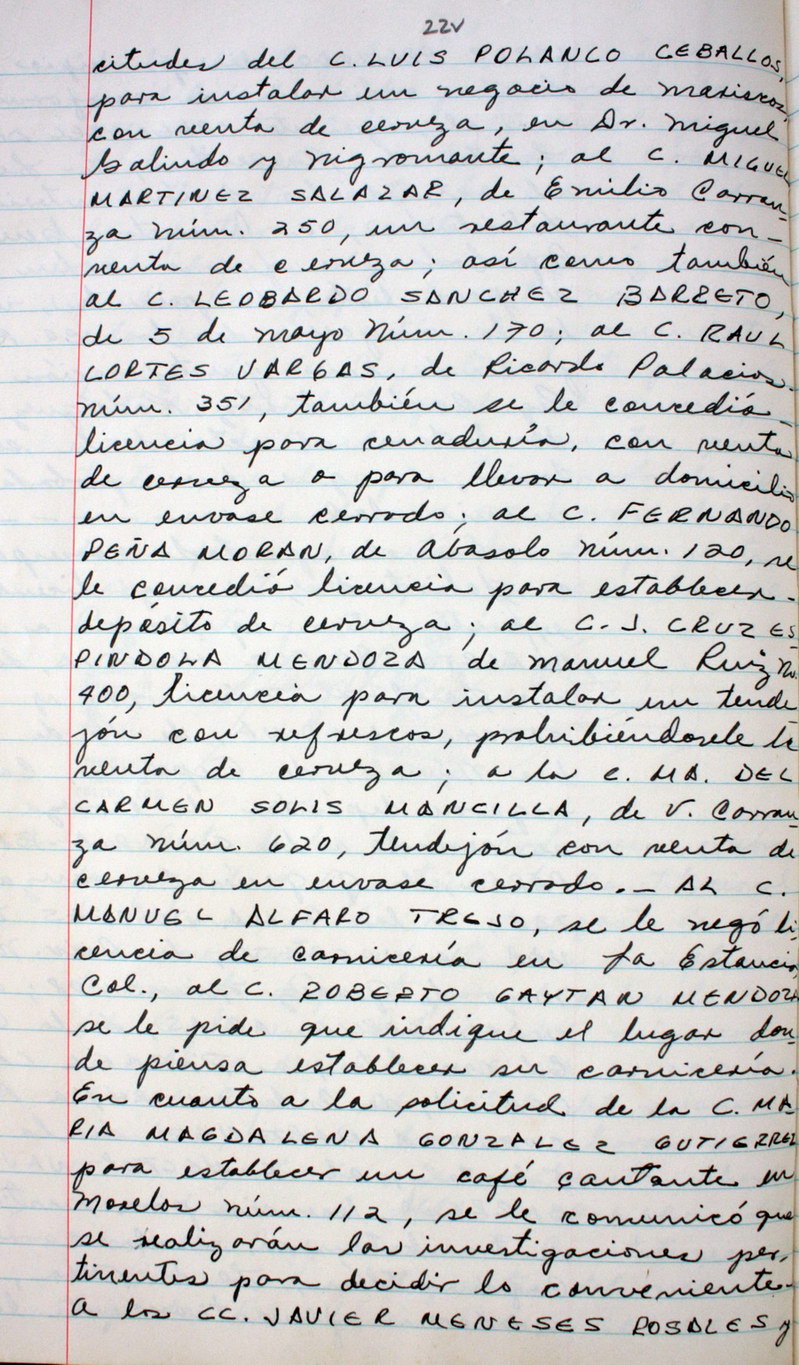 22v
citudes del C. LUIS POLANCO CEBALLOS,
para instalar un negocio de mariscos
con venta de cerveza, en Dr. Miguel
Galindo y Nigromante; al C. MIGUEL
MARTINEZ SALAZAR, de Emilio Carran-
za núm. 250, un restaurante con-
venta de cerveza; así como también
al C. LEOBARDO SANCHEZ BARRETO,
de 5 de mayo Núm. 170; al C. RAUL
CORTES VARGAS, de Ricardo Palacios-
núm. 351, también se le concedió-
licencia para cenaduría, con venta
de cerveza o para llevar a domicilio
en envase cerrado; al C. FERNANDO
PEÑA MORAN, de Abasolo núm. 120, se
le concedió licencia para establecer-
depósito de cerveza; al C. J. CRUZ ES-
PINDOLA MENDOZA de Manuel Ruiz No.
400, licencia para instalar un tende
jón con refrescos, prohibiéndosele la
venta de cerveza; a la C. MA. DEL
CARMEN SOLIS MANCILLA, de V. Carran-
za núm. 620, tendejón con venta de
cerveza en envase cerrado.- AL C.
MANUEL ALFARO TREJO, se le negó li
cencia de carnicería en la Estancia
Col., al C. ROBERTO GAYTAN MENDOZA
se le pide que indique el lugar don-
de piensa establecer su carnicería.
En cuanto a la solicitud de la C. MA-
RIA MAGDALENA GONZALEZ GUTIERREZ
para establecer un café cantante en
Morelos núm. 112, se le comunicó que
se realizarán las investigaciones per-
tinentes para decidir lo conveniente-
A los CC. JAVIER MENESES ROSALES y